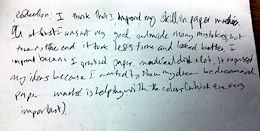 reduction: I think that I improved my skill in paper mache.
At first I was not very good and made many mistakes but
towards the end it took less time and looked better. I
improved because I practiced paper mache and did a lot. It improved
my ideas because I wanted to show my dream be
paper mache is helping with the colors (which are very
important).